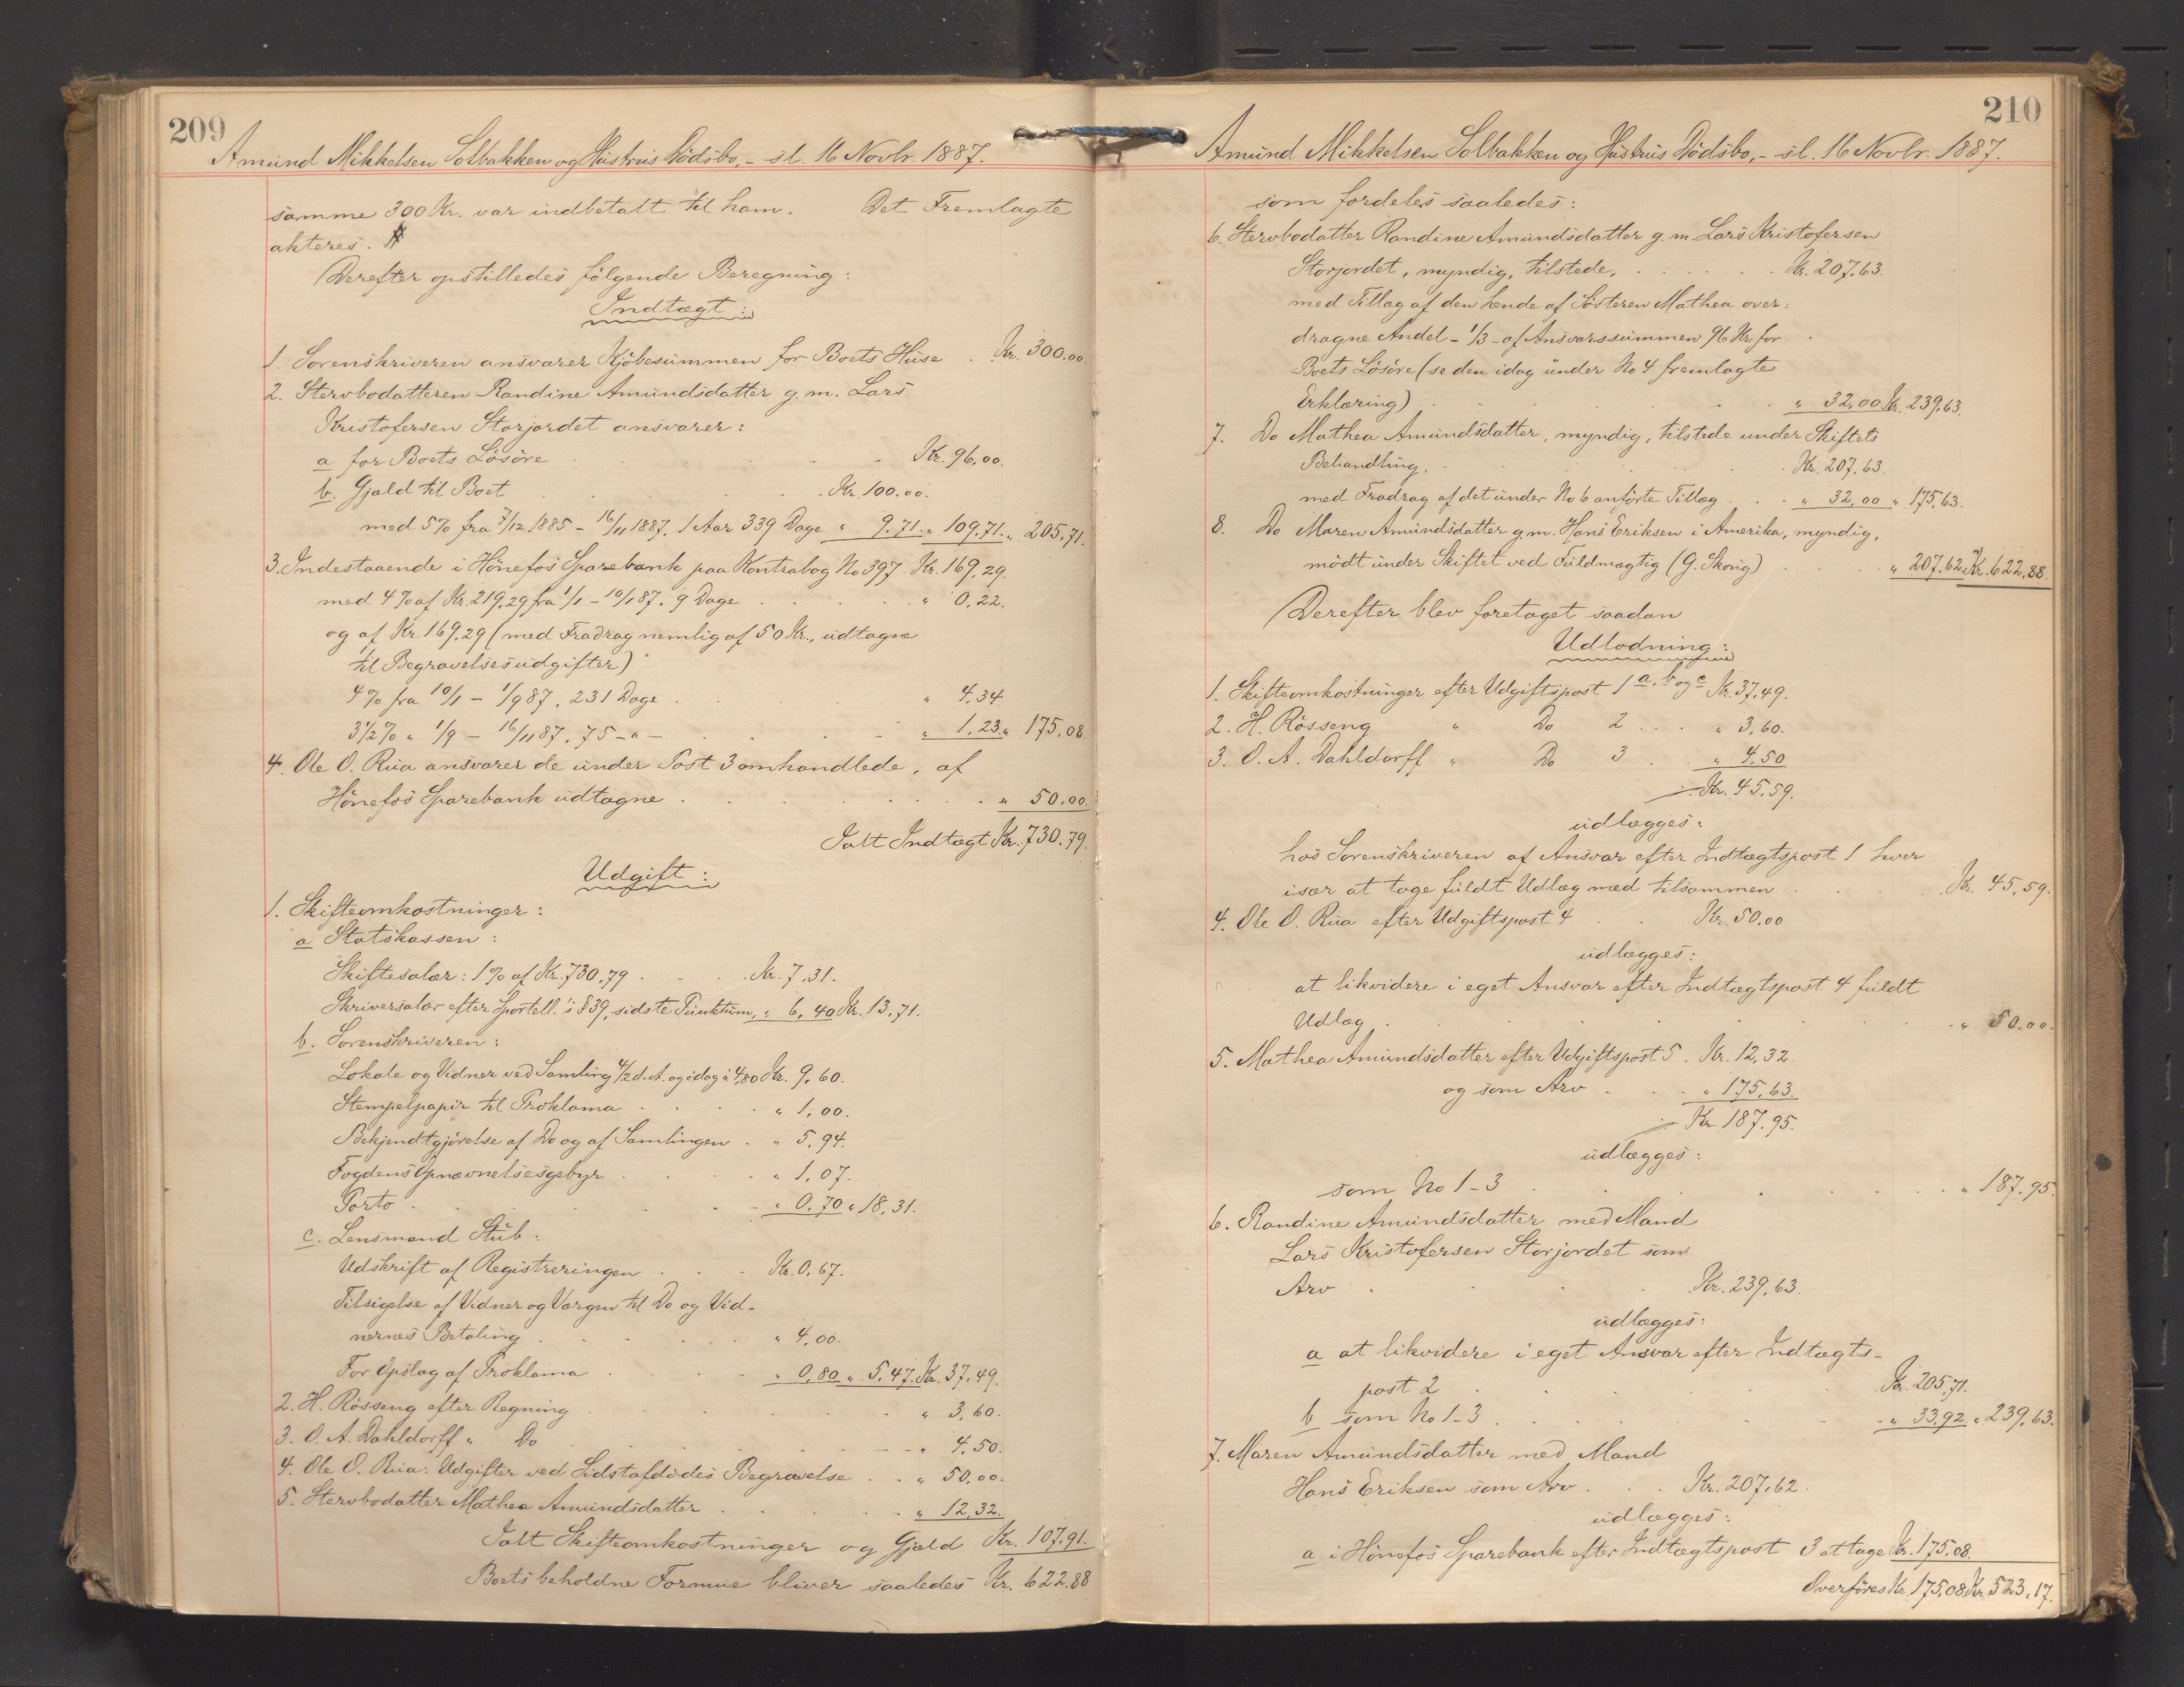 209
Amund Mikkelsen Solbakken og Hustrus Dödsbo, - sl. 16 Novbr. 1887.
samme 300 Kr. var indbetalt til ham. Det Fremlagte
akteres.
Derefter opstilledes følgende Beregning:
Indtægt:
1. Sorenskriveren ansvarer Kjöbesummen for Boets Huse . Kr. 300.00.
2. Stervbodatteren Randine Amundsdatter g. m. Lars
Kristofersen Storjordet ansvarer:
a for Boets Lösöre . . . Kr. 96,00.
b. Gjæld til Boet . . . Kr. 100.00.
med 5% fra 7/12 1885 - 16/11 1887, 1 Aar 339 Dage " 9.71. " 109,71. " 205,71.
3. Indestaaende i Hönefos Sparebank paa Kontrabog No 397 Kr. 169,29.
med 4% af Kr. 219,29 fra 1/1 - 10/1 87. 9 Dage . . . " 0,22.
og af Kr. 169,29 (med Fradrag nemlig af 50 Kr., udtagne
til Begravelsesudgifter)
4% fra 10/1 - 1/9 87, 231 Dage . . . " 4,34.
3 1/2% " 1/9 - 16/11 87. 75 - " - . . . " 1,23. " 175,08.
4. Ole O. Rua ansvarer de under Post 3 omhandlede, af
Hönefos Sparebank udtagne . . . " 50.00.
Ialt Indtægt Kr. 730.79.
Udgift:
1. Skifteomkostninger:
a Statskassen:
Skiftesalær: 1% af Kr. 730,79 . . . Kr. 7,31.
Skriversalær efter Sportell. s § 39, sidste Punktum, " 6,40 Kr. 13,71.
b. Sorenskriveren:
Lokale og Vidner ved Samling 4/2 d. A. og idag à 4,80 Kr. 9,60.
Stempelpapir til Proklama . . . " 1,00.
Bekjendtgjörelse af Do og af Samlingen . " 5,94.
Fogdens Opnævnelsesgebyr . . . " 1,07.
Porto . . . " 0,70 " 18,31.
c. Lensmand Stub:
Udskrift af Registreringen . . . Kr. 0,67.
Tilsigelse af Vidner og Værgen til Do og Vid-
nernes Betaling . . . " 4,00.
For Opslag af Proklama . . . " 0,80 " 5,47. Kr. 37,49.
2. H. Rösseng efter Regning . . . " 3,60.
3. O. A. Dahldorff " Do . . . " 4,50.
4. Ole O. Rua: Udgifter ved Sidstafdödes Begravelse . . " 50,00.
5. Stervbodatter Mathea Amundsdatter . . . " 12,32.
Ialt Skifteomkostninger og Gjæld Kr. 107,91.
Boets beholdne Formue bliver saaledes Kr. 622,88
210
Amund Mikkelsen Solbakken og Hustrus Dödsbo, - sl. 16 Novbr. 1887.
som fordeles saaledes:
6. Stervbodatter Randine Amundsdatter g. m. Lars Kristofersen
Storjordet, myndig, tilstede, . . . Kr. 207,63.
med Tillæg af den hende af Sösteren Mathea over:
dragne Andel - 1/3 - af Ansvarssummen 96 Kr. for
Boets Lösöre (se den idag under No 4 fremlagte
Erklæring) . . . " 32,00 Kr. 239,63.
7. Do Mathea Amundsdatter, myndig, tilstede under Skiftets
Behandling, . . . Kr. 207,63.
med Fradrag af det under No 6 anförte Tillæg . . " 32,00 " 175,63.
8. Do Maren Amundsdatter g. m. Hans Eriksen i Amerika, myndig,
mödt under Skiftet ved Fuldmægtig (G. Skoug) . . . " 207,62. Kr. 622,88.
Derefter blev foretaget saadan
Udlodning:
1. Skifteomkostninger efter Udgiftspost 1 a, b og c Kr. 37,49.
2. H. Rösseng " Do 2 . . . " 3,60.
3. O. A. Dahldorff " Do 3 . . " 4,50
Kr. 45,59.
udlægges:
hos Sorenskriveren af Ansvar efter Indtægtspost 1 hver
især at tage fuldt Udlæg med tilsammen . . . Kr. 45,59.
4. Ole O. Rua efter Udgiftspost 4 . . Kr. 50.00
udlægges:
at likvidere i eget Ansvar efter Indtægtspost 4 fuldt
Udlæg . . . " 50.00.
5. Mathea Amundsdatter efter Udgiftspost 5. Kr. 12,32.
og som Arv . . . " 175,63.
Kr. 187,95.
udlægges:
som No 1-3 . . . " 187,95.
6. Randine Amundsdatter med Mand
Lars Kristofersen Storjordet som
Arv . . . Kr. 239,63.
udlægges:
a at likvidere i eget Ansvar efter Indtægts-
post 2 . . . Kr. 205,71.
b som No 1-3 . . . " 33,92. " 239,63.
7. Maren Amundsdatter med Mand
Hans Eriksen som Arv . . . Kr. 207,62.
udlægges:
a i Hönefos Sparebank efter Indtægtspost 3 at tage Kr. 175,08.
Overföres Kr. 175,08 Kr. 523,17.